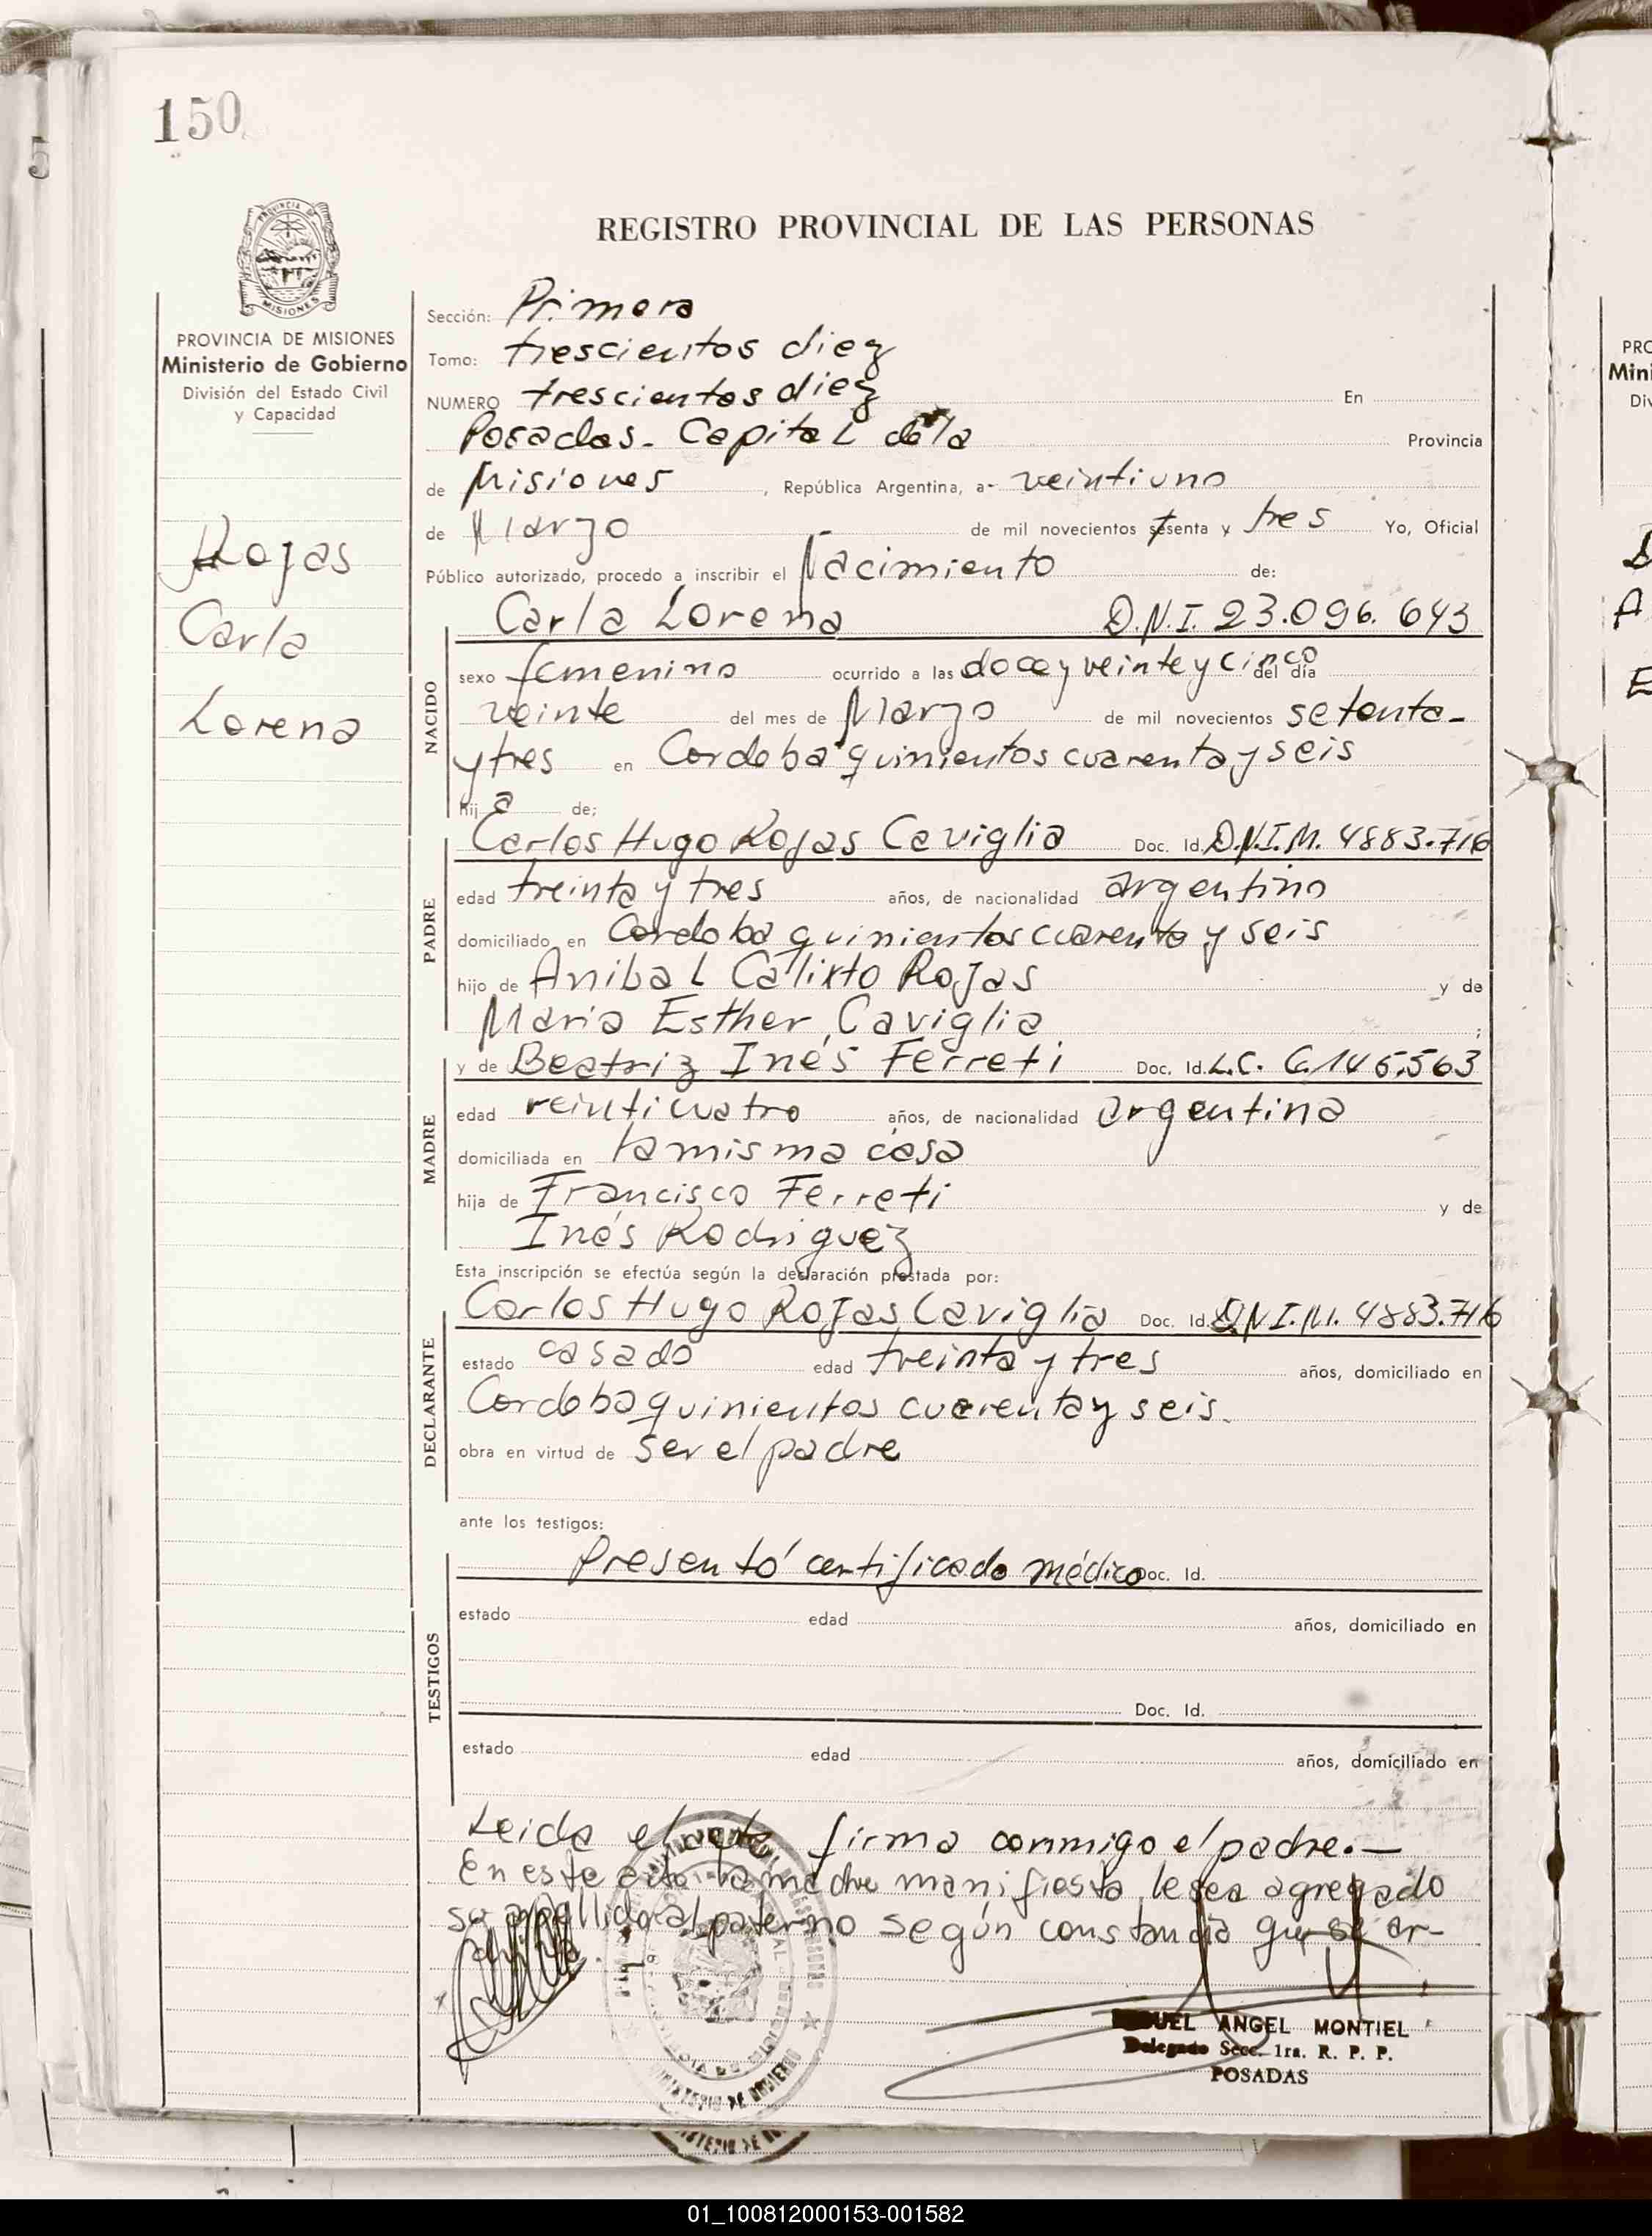 150
REGISTRO PROVINCIAL DE LAS PERSONAS
PROVINCIA DE
MISIONES
PROVINCIA DE MISIONES
Ministerio de Gobierno
División del Estado Civil
y Capacidad
Rojas
Carla
Lorena
Sección: Primera
Tomo: trescientos diez
NUMERO trescientos diez En
Posadas - Capital de la Provincia
de Misiones, República Argentina, a- veintiuno
de Marzo de mil novecientos setenta y tres Yo, Oficial
Público autorizado, procedo a inscribir el Nacimiento de:
Carla Lorena D.N.I. 23.096.643
NACIDO
sexo femenino ocurrido a las doce y veinte y cinco del día
veinte del mes de Marzo de mil novecientos setenta-
y tres en Cordoba quinientos cuarenta y seis
hija de;
PADRE
Carlos Hugo Rojas Caviglia Doc. Id. D.N.I.M. 4883.716
edad treinta y tres años, de nacionalidad argentino
domiciliado en Cordoba quinientos cuarenta y seis
hijo de Anibal Calixto Rojas y de
Maria Esther Caviglia ;
MADRE
y de Beatriz Inés Ferreti Doc. Id. L.C. 6.145.563
edad veinticuatro años, de nacionalidad argentina
domiciliada en la misma casa
hija de Francisco Ferreti y de
Inés Rodriguez
Esta inscripción se efectúa según la declaración prestada por:
DECLARANTE
Carlos Hugo Rojas Caviglia Doc. Id. D.N.I.M. 4883.716
estado casado edad treinta y tres años, domiciliado en
Cordoba quinientos cuarenta y seis.
obra en virtud de ser el padre
ante los testigos:
TESTIGOS
Presentó certificado médico Doc. Id.
estado edad años, domiciliado en
Doc. Id.
estado edad años, domiciliado en
Leida el acta firma conmigo el padre.-
En este acto la madre manifiesta le sea agregado
su apellido al paterno según constancia que se ar-
ANGEL MONTIEL
Delegado Secc. 1ra. R. P. P.
POSADAS
MINISTERIO DE GOBIERNO
01_100812000153-001582